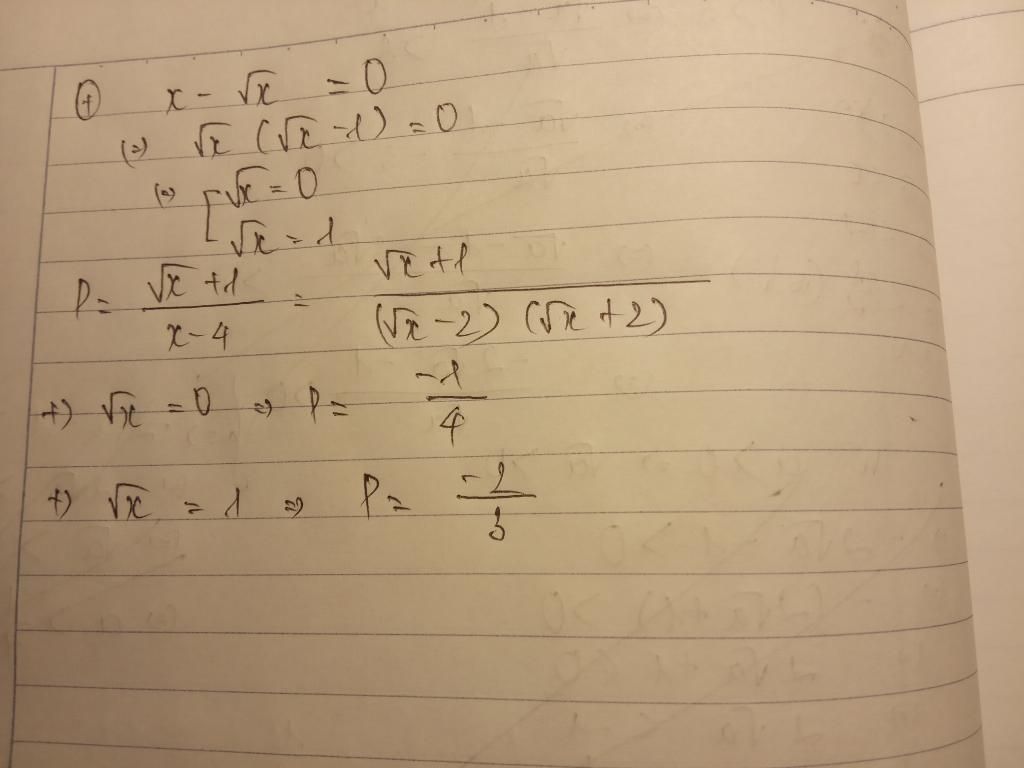 ⊕ x - √x = 0
(=) √x (√x - 1) = 0
(=) [ √x = 0
√x = 1
P = (√x + 1)/(x - 4) = (√x + 1)/((√x - 2) (√x + 2))
+) √x = 0 => P = -1/4
+) √x = 1 => P = -2/3